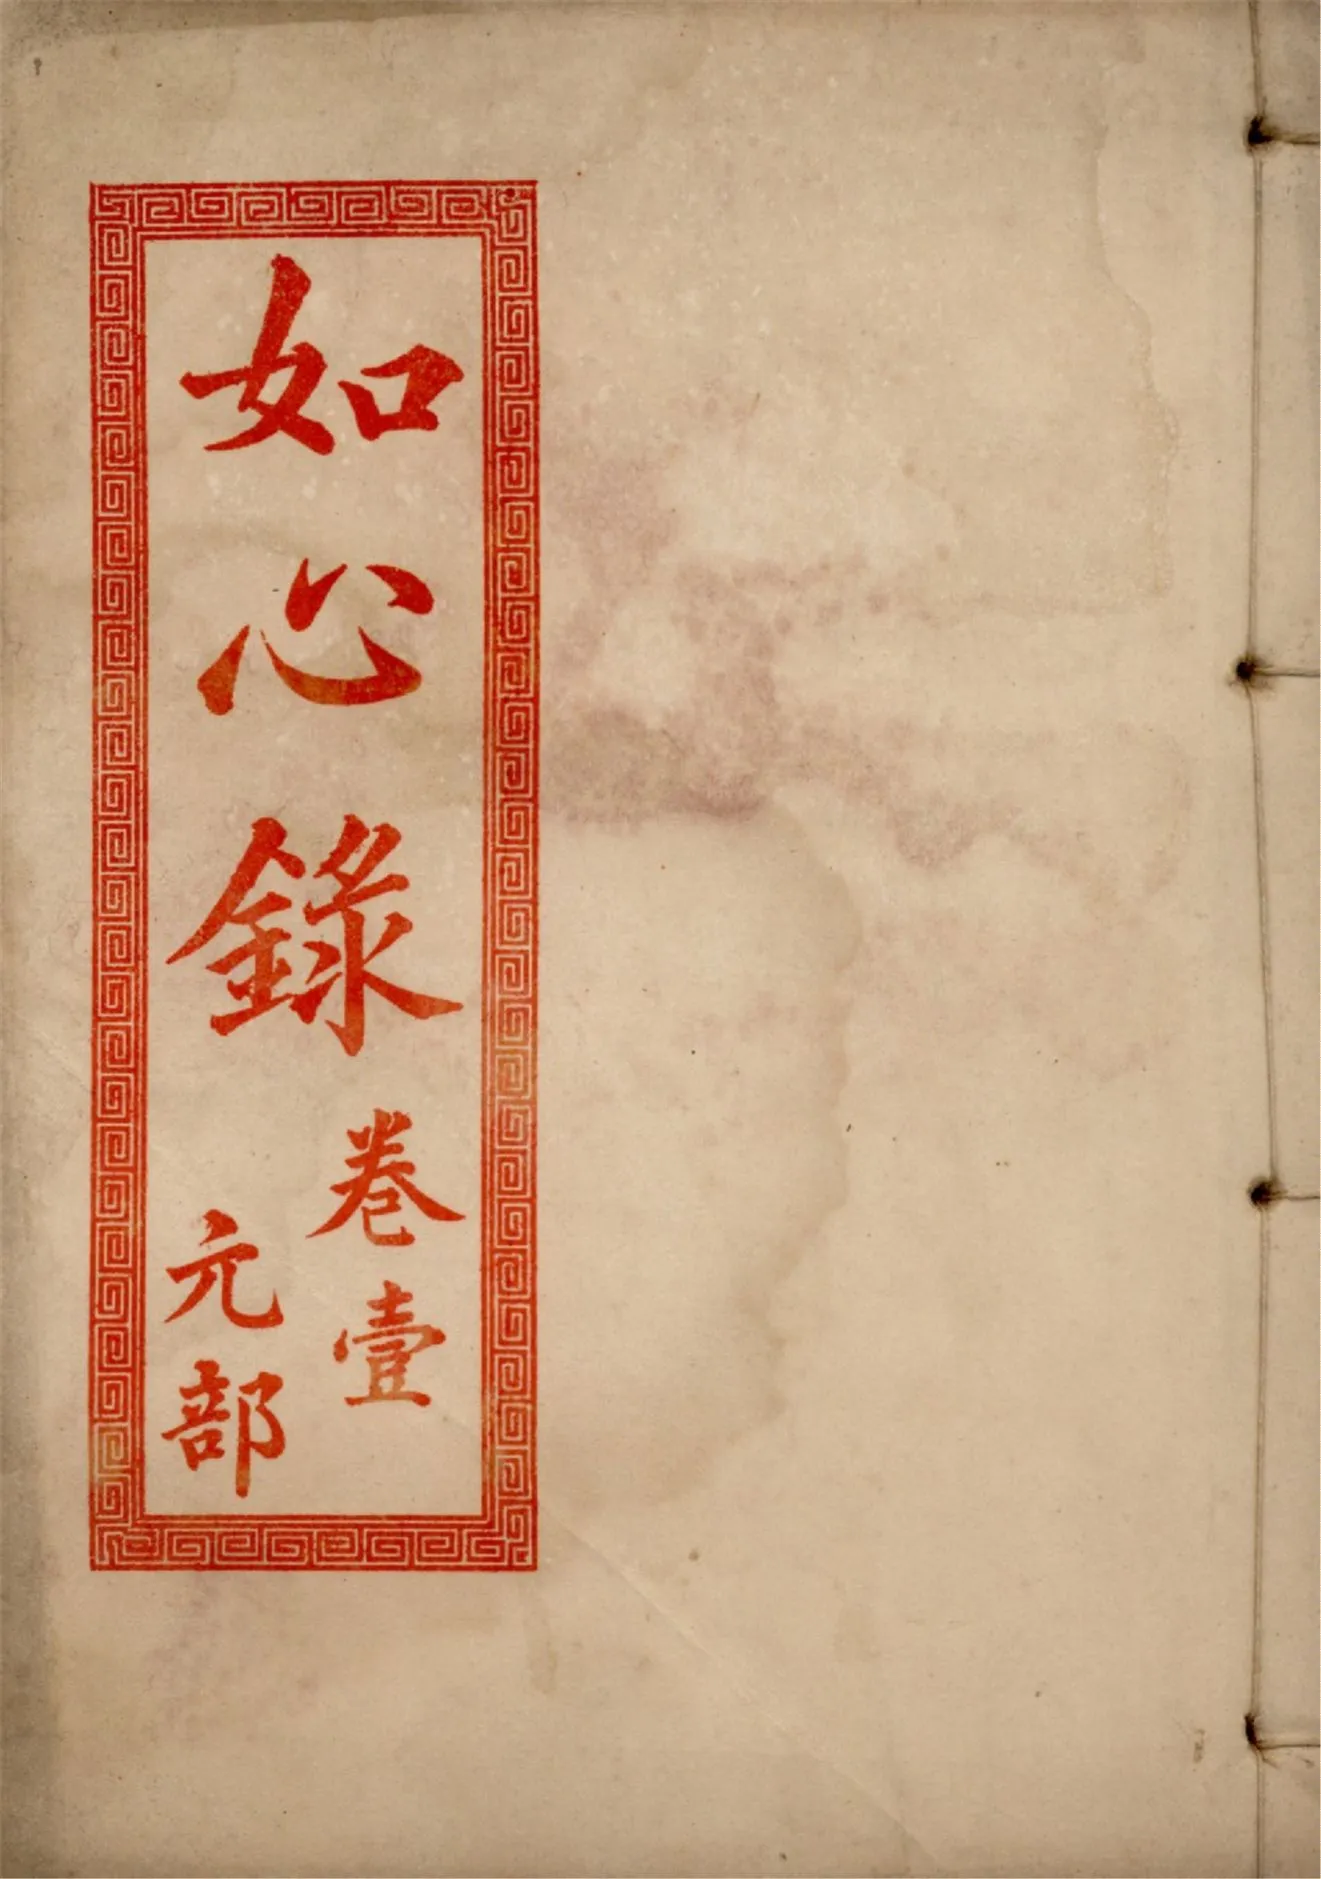 如心錄
卷壹
元部